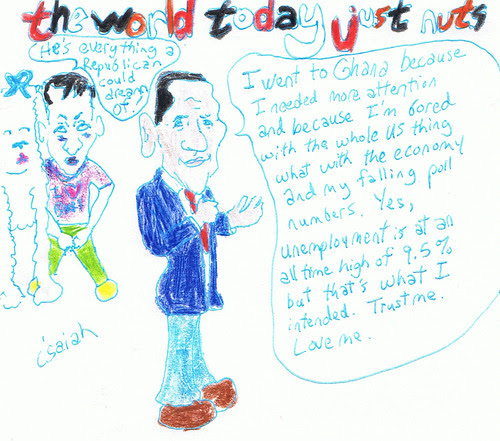 the world today just nuts
He's everything a
Republican
could
dream
of.
I went to Ghana because
I needed more attention
and because I'm bored
with the whole US thing
what with the economy
and my falling poll
numbers. Yes,
unemployment is at an
all time high of 9.5%
but that's what I
intended. Trust me.
Love me.
c'saiah